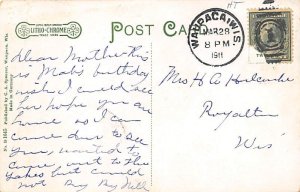 LITHO-CHROME
POST CARD
WAUPACA, WIS
MAR 28
8 PM
1911
Dear Mother this
is Mabs birthday
wish I could see
her hope you are
home as I can
come over to see
you, wanted to
come out to the
lakes but could
not By By Nell
Mrs H A Holcombe
Royalton
Wis
Made in Germany